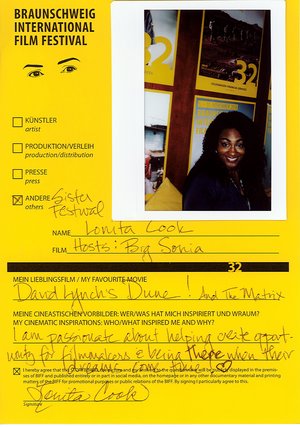 BRAUNSCHWEIG
INTERNATIONAL
FILM FESTIVAL
32
32
KÜNSTLER
artist
PRODUKTION/VERLEIH
production/distribution
PRESSE
press
ANDERE Sister
others Festival
NAME Lonita Cook
FILM Hosts: Big Sonia
32
MEIN LIEBLINGSFILM / MY FAVOURITE MOVIE
David Lynch's Dune! And The Matrix
MEINE CINEASTISCHEN VORBILDER: WER/WAS HAT MICH INSPIRIERT UND WARUM?
MY CINEMATIC INSPIRATIONS: WHO/WHAT INSPIRED ME AND WHY?
I am passionate about helping create opport-
unity for filmmakers & being there when their
dreams come true!
I hereby agree that the will be displayed in the premis-
es of BIFF and published entirely or in part in social media, on the homepage or in any other documentary material and printing
matters of the BIFF for promotional purposes or public relations of the BIFF. By signing I particularly agree to this.
Lonita Cook
Signature